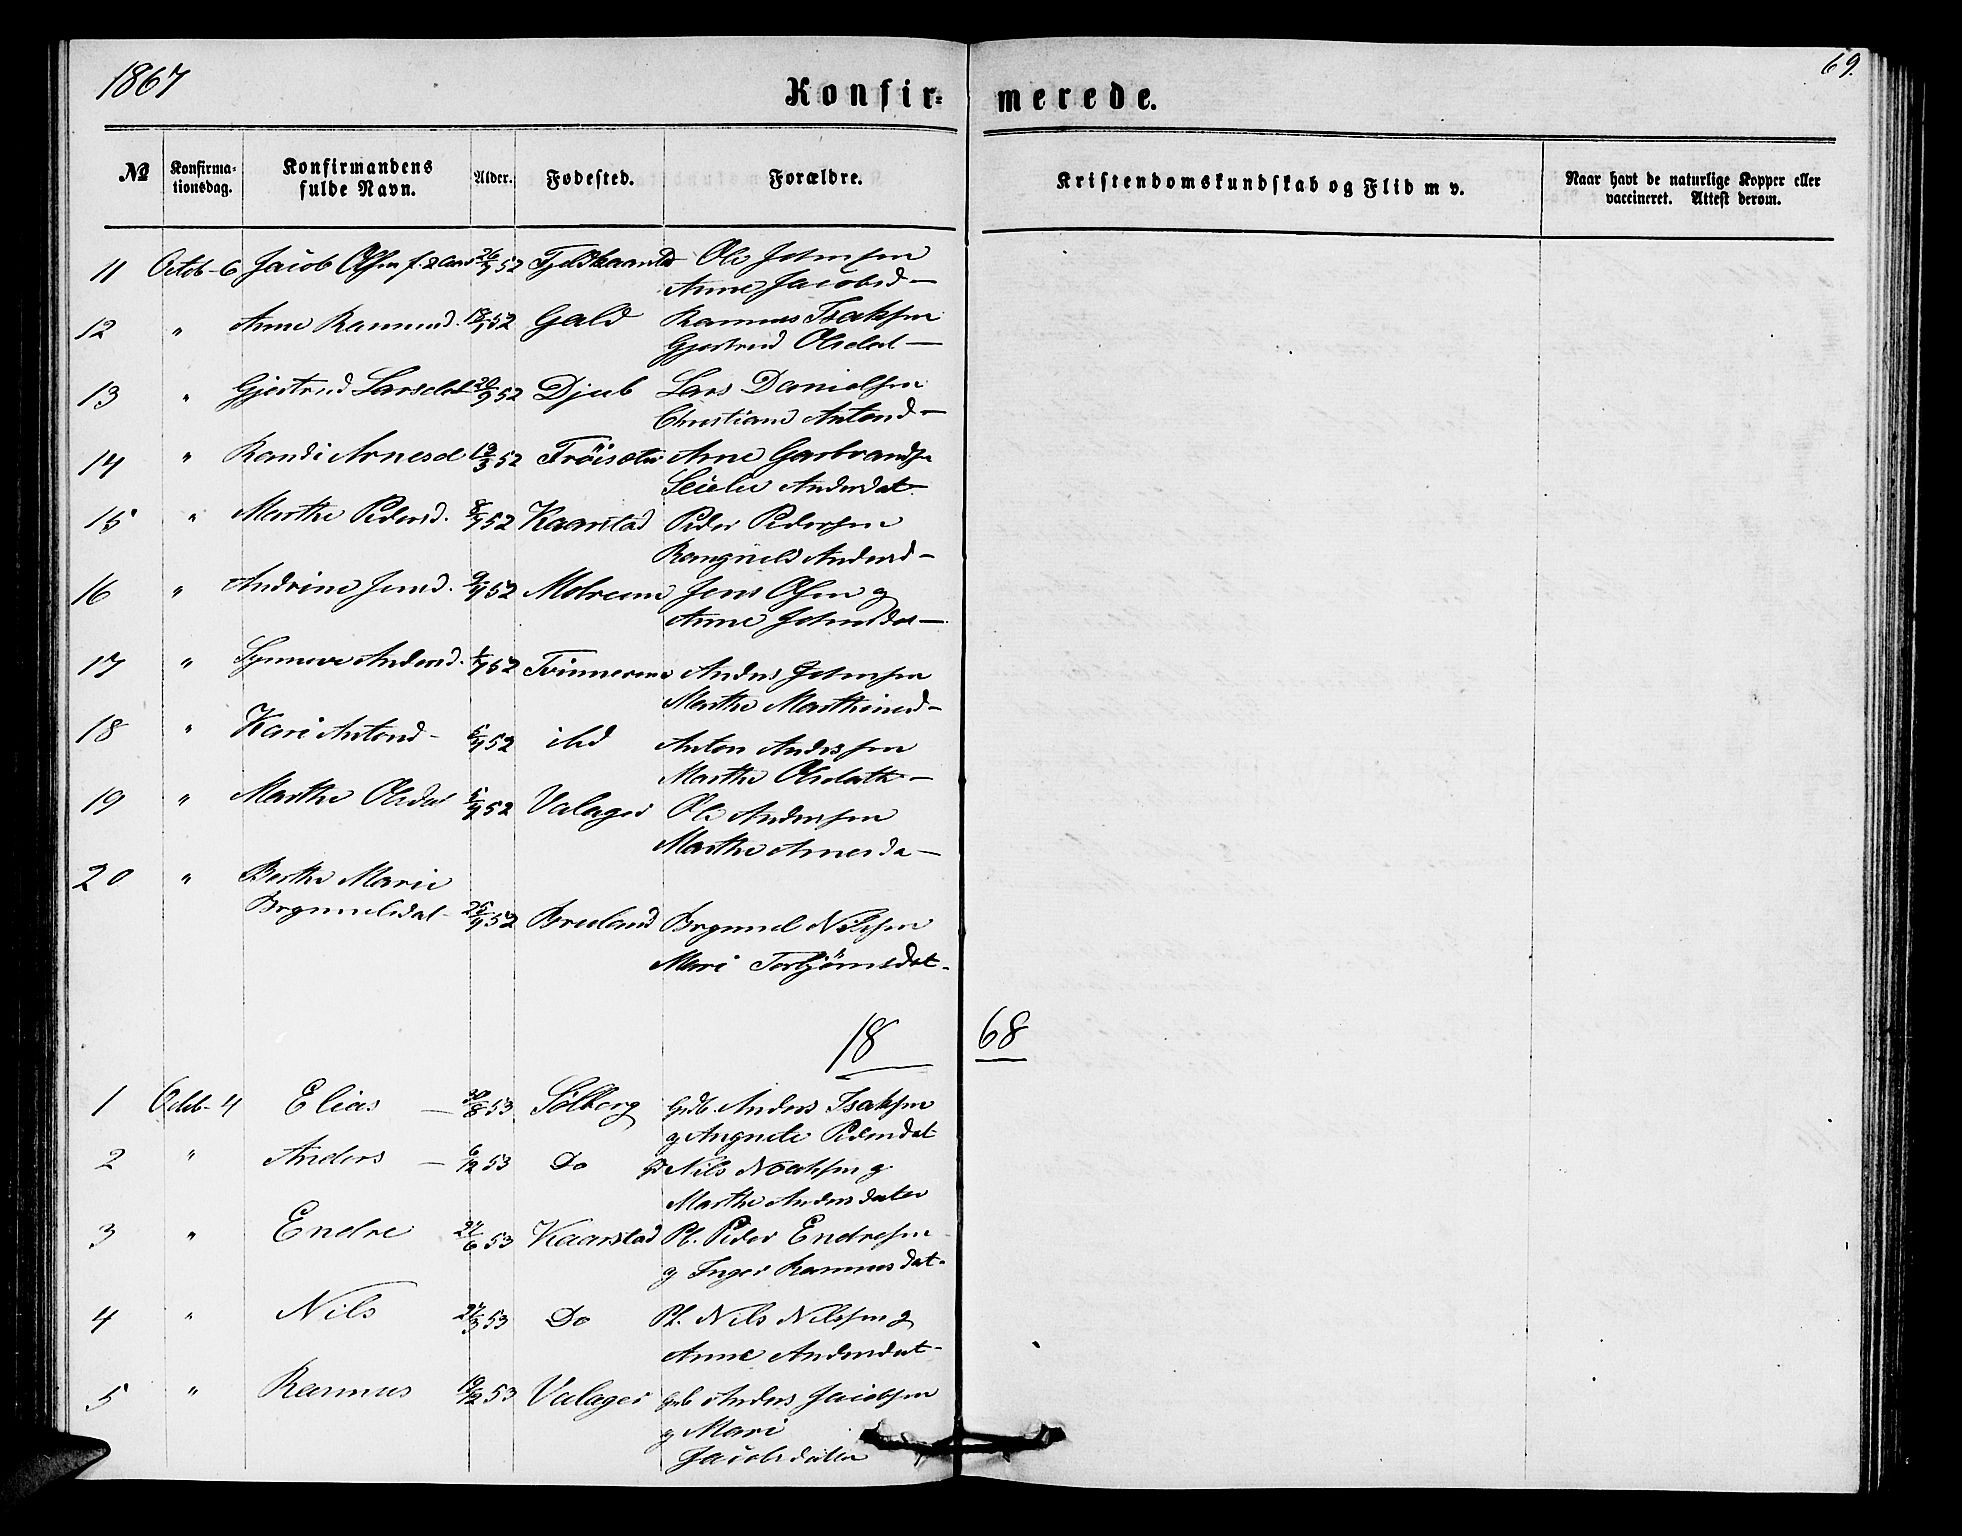 1867
69.
Konfir= merede.
№ Konfirma-tionsdag. Konfirmandens fulde Navn. Alder. Fødested. Forældre. Kristendomskundskab og Flid m v. Naar havt de naturlige Kopper eller vaccineret. Attest derom.
11 Octob-6 Jacob Olsen 26/7 52 Ole Johnsen
Anne Jacobsd—
12 " Anne Rasmusd. 52 Gald Rasmus Isaksen
Gjertrud Olsdat—
13 " Gjertrud Larsdat 20/9 52 Djub Lars Danielsen
Christiane Antond—
14 " Randi Arnesd 19/3 52 Arne Garbrandsn
Andersdat
15 " Marthe Pedersd. 8/7 52 Kaarstad Peder Pedersen
Rangnild Andersd—
16 " Andrine Jensd. 9/9 52 Jens Olsen g
Anne Johnsdat—
17 " Synneve Andersd. 52 Tvinnerem Anders Johnsen
Marthe Marthinusd—
18 " Kari Antond— 52 ibd Anton Andersen
Marthe Olsdatt—
19 " Marthe Olsdat 5/9 52 Valager Ole Andersen
Marthe Arnesda—
20 " Berthe Marie
Brynnelsdat 25/9 52 Breeland Brynnel Nilssen
Mari Torbjörnsdat-
18 68
1 Octob-4 Elias — 30/8 53 Sölberg Gdb. Anders Isaksen
g Angnete Pedersdat
2 " Anders — 6/12 53 Do Nils Noaksen g
Marthe Andersdater
3 " Endre 22/6 53 Kaarstad Pl. Peder Endresen
g Inger Rasmusdat-
4 " Nils 27/3 53 Do Pl. Nils Nilssen g
Anne Andersdat-
5 " Rasmus 19/12 53 Valager Gdb Anders Jacobsen
g Mari
Jacobsdatter